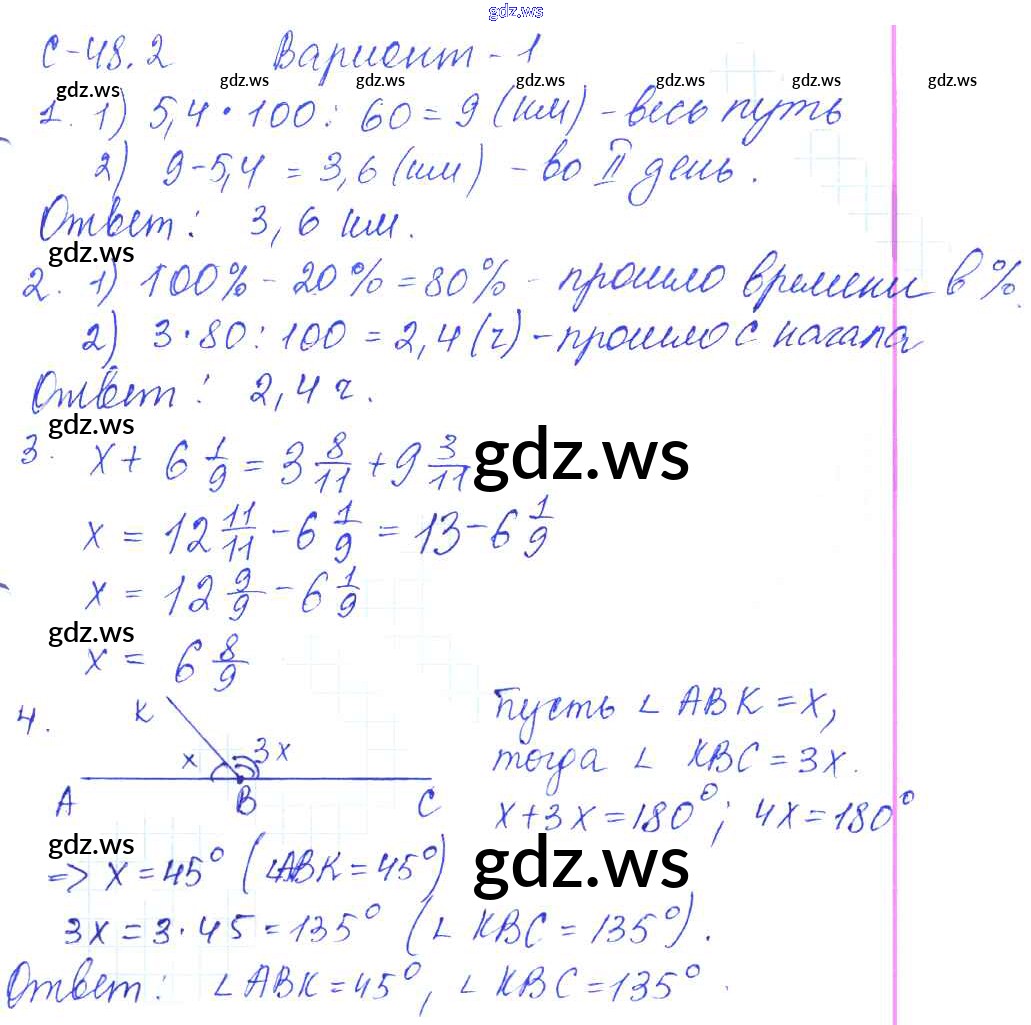 gdz.ws
С-48.2 Вариант-1
gdz.ws gdz.ws gdz.ws gdz.ws gdz.ws gdz.ws
1. 1) 5,4 · 100 : 60 = 9 (км) - весь путь
2) 9-5,4 = 3,6 (км) - во II день.
Ответ: 3,6 км.
gdz.ws
2. 1) 100% - 20% = 80% - прошло времени в %.
2) 3·80:100 = 2,4 (ч) - прошло с начала
Ответ: 2,4 ч.
gdz.ws
3. x + 6 1/9 = 3 8/11 + 9 3/11
gdz.ws
x = 12 11/11 - 6 1/9 = 13 - 6 1/9
x = 12 9/9 - 6 1/9
gdz.ws
x = 6 8/9
4. K x 3x A B C
Пусть ∠ ABK = x,
тогда ∠ KBC = 3x.
x+3x = 180°; 4x = 180°
gdz.ws
gdz.ws
=> x = 45° (∠ABK = 45°)
3x = 3·45 = 135° (∠ KBC = 135°).
Ответ: ∠ABK = 45°, ∠ KBC = 135°.